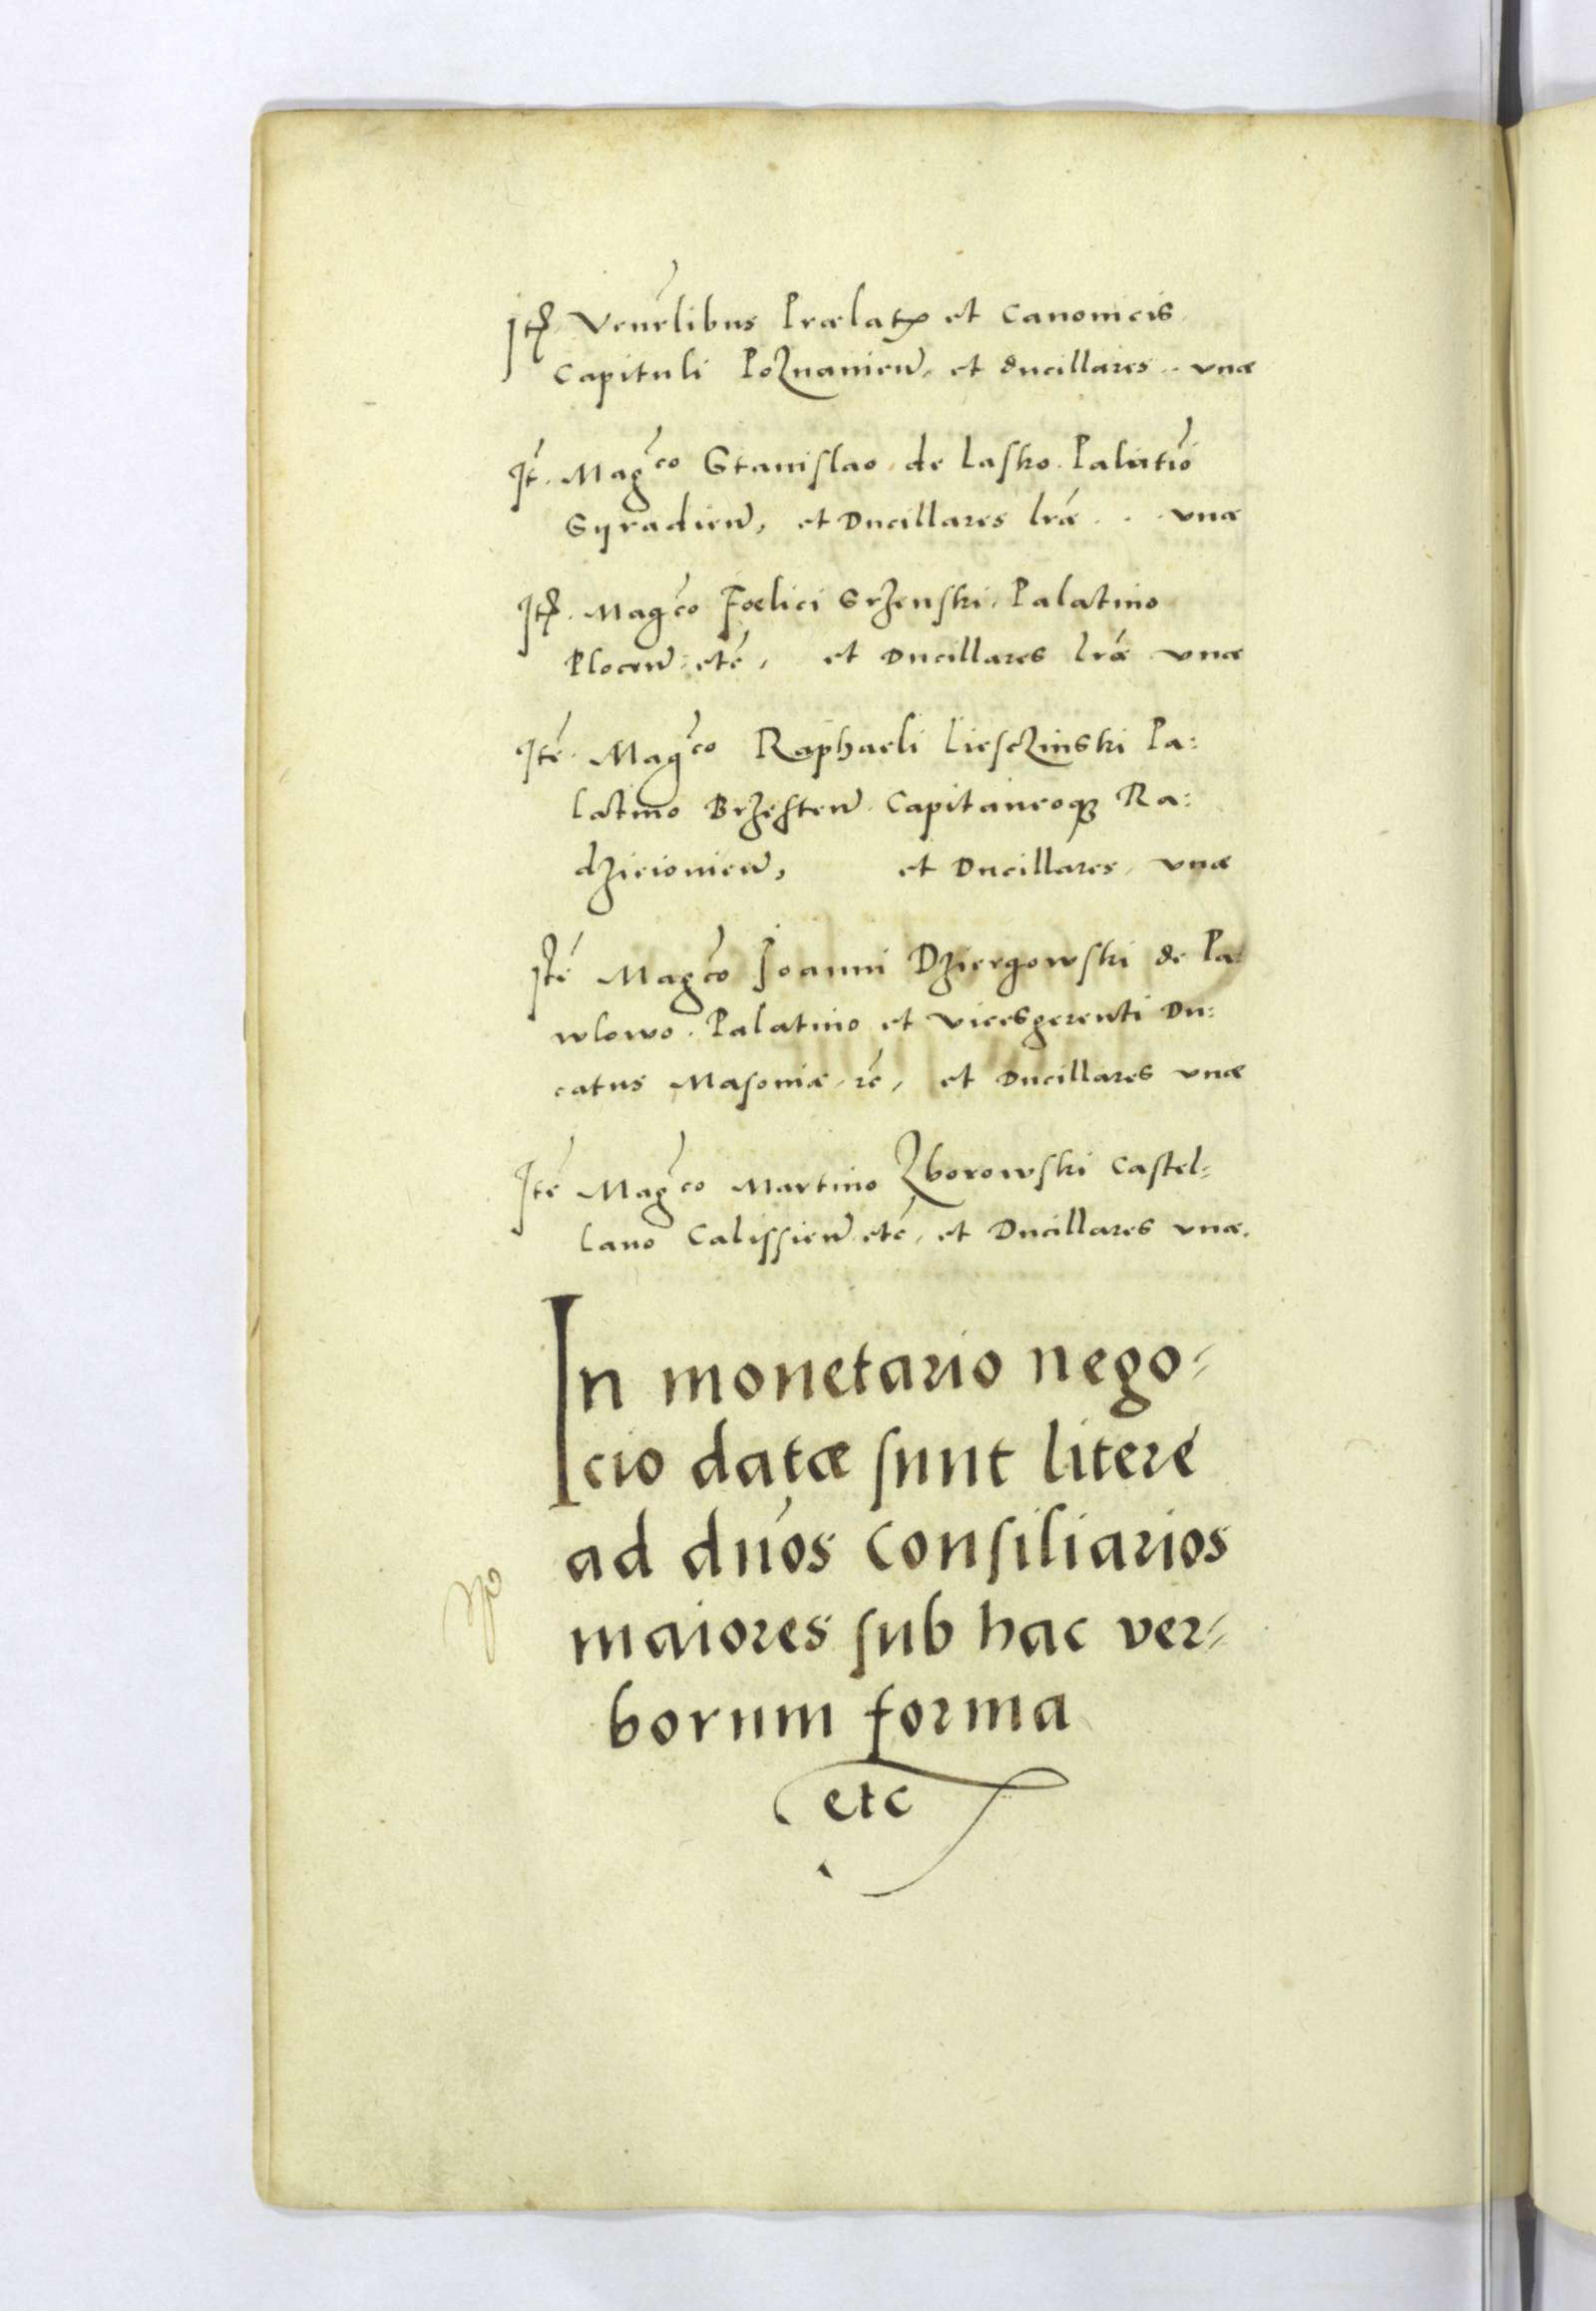 Itē Venēlibus Prælatis et Canonicis
Capituli Poznanien̄, et ducillares unæ
Itē. Mag̅co Stanislao de Lasko Palatīo
Syradien̄, et Ducillares lr̄æ unæ
Itē. Mag̅co Fœlici Srzenski, Palatino
Plocen̄ etc̄, et Ducillares lr̄æ unæ
Itē. Mag̅co Raphaeli Liesczinski Pa:
latino Brzesten̄ Capitaneoq; Ra:
dzieiowien̄, et Ducillares, unæ
Itē Mag̅co Joanni Dziergowski de Pa:
wlowo. Palatino et vicesgerenti Du:
catus Masoniæ, rc̄, et Ducillares unæ
Itē Mag̅co Martino Zborowski Castel=
lano Calissien̄ etc̄, et Ducillares unæ.
In monetario nego=
cio datæ sunt literę
ad dn̄os Consiliarios
maiores sub hac ver=
borum forma
etc